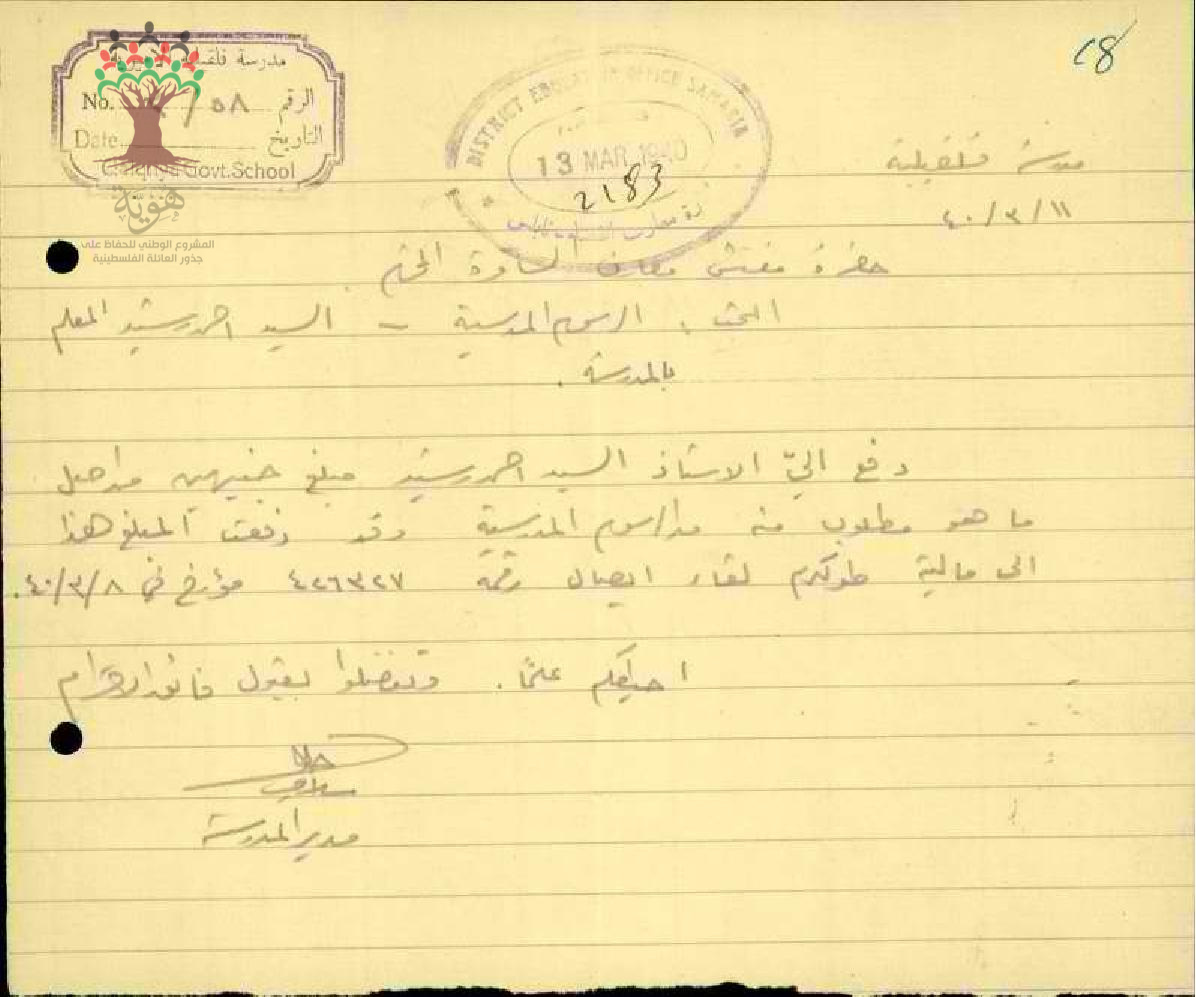 مدرسة قلقيلية الاميرية
No. /٥٨ الرقم
Date التاريخ
Qalqilya Govt.School
هوية
المشروع الوطني للحفاظ على
جذور العائلة الفلسطينية
DISTRICT EDUCATION OFFICE SAMARIA
13 MAR 1940
2183
18
مدرسة قلقيلية
٤٠/٣/١١
حضرة مفتش معارف السامرة المحترم
البحث : الرسوم المدرسية - السيد احمد رشيد المعلم
بالمدرسة .
دفع اليّ الاستاذ السيد احمد رشيد مبلغ جنيهين من اصل
ما هو مطلوب منه من الرسوم المدرسية وقد دفعت المبلغ هذا
الى مالية طولكرم لقاء ايصال رقمه ٤٢٦٣٢٧ مؤرخ في ٤٠/٣/٨.
احيطكم علمًا. وتفضلوا بقبول فائق الاحترام
مدير المدرسة